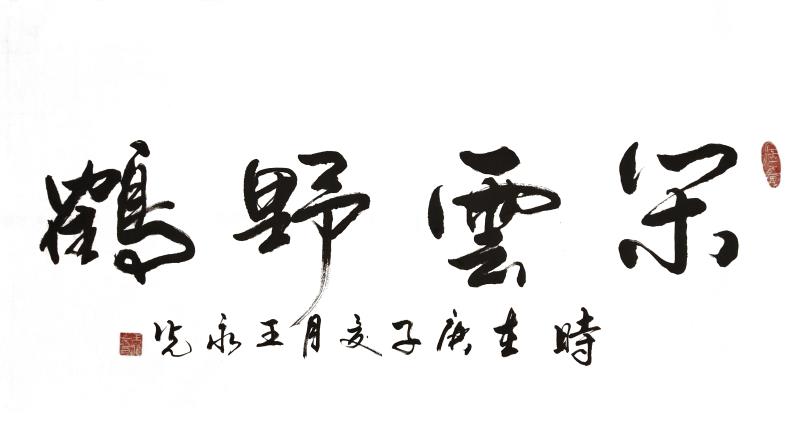 閑雲野鶴
時在庚子夏月王永光